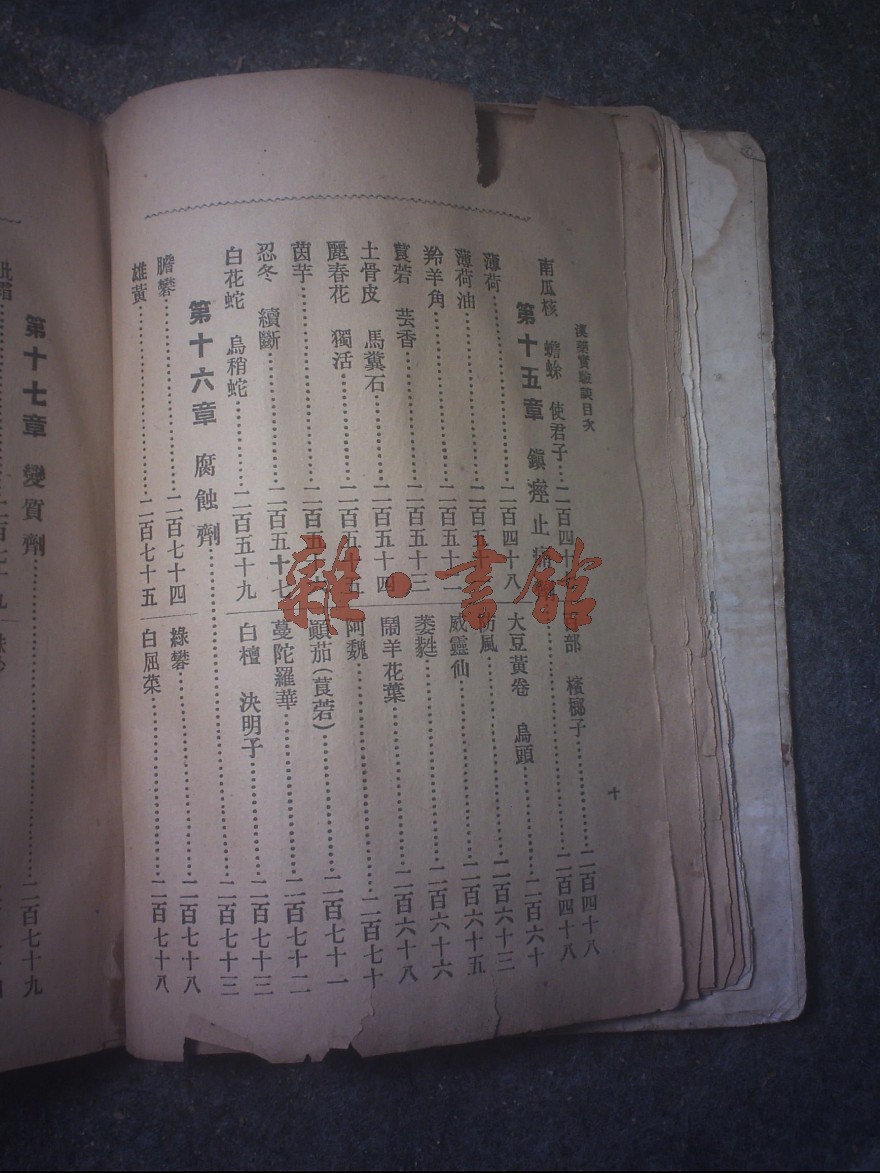 漢藥實驗談目次
十
南瓜核 蟾蜍 使君子……二百四十
百部 檳榔子……二百四十八
第十五章 鎮痙止痛……二百四十八
薄荷……二百四十八
薄荷油……二百五十
羚羊角……二百五十二
莨菪 芸香……二百五十三
土骨皮 馬糞石……二百五十四
麗春花 獨活……二百五十五
茵芋……二百五十
忍冬 續斷……二百五十七
白花蛇 烏稍蛇……二百五十九
大豆黃卷 烏頭……二百六十
防風……二百六十三
威靈仙……二百六十五
萎蕤……二百六十六
鬧羊花葉……二百六十八
阿魏……二百七十
顚茄(莨菪)……二百七十一
蔓陀羅華……二百七十二
白檀 決明子……二百七十三
第十六章 腐蝕劑……二百七十三
膽礬……二百七十四
雄黃……二百七十五
綠礬……二百七十八
白屈菜……二百七十八
第十七章 變質劑……二百七十九
砒霜……二百七十九
雜·書館